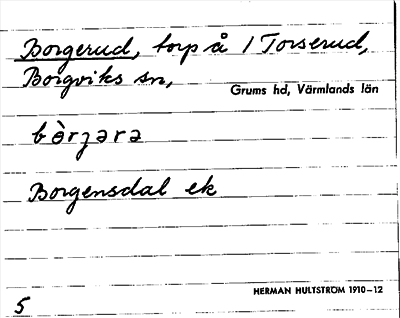 Borgerud, torp å 1 Torserud,
Borgviks sn,
Grums hd, Värmlands län
bèrjərə
Borgensdal ek
HERMAN HULTSTRÖM 1910–12
5